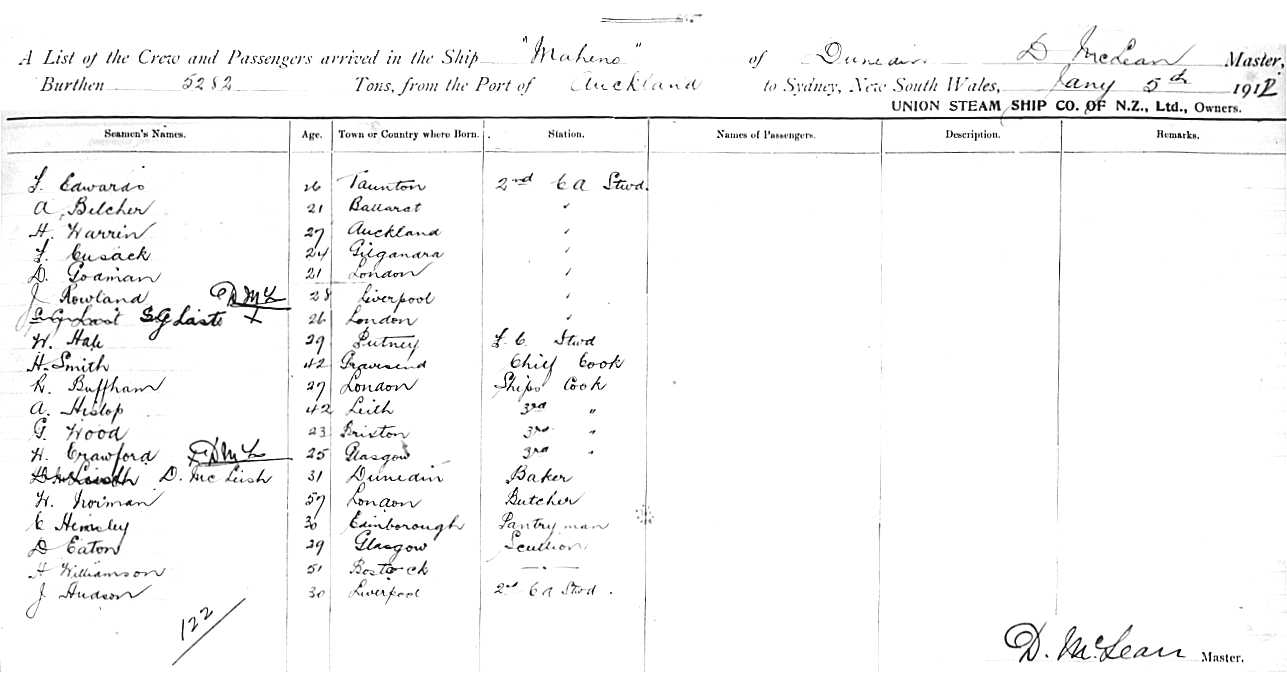 A List of the Crew and Passengers arrived in the Ship "Maheno" of Dunedin D McLean Master,
Burthen 5282 Tons, from the Port of Auckland to Sydney, New South Wales, Jany 5th 1912
UNION STEAM SHIP CO. OF N.Z., Ltd., Owners.
Seamen's Names. Age. Town or Country where Born. Station. Names of Passengers. Description. Remarks.
F. Edwards 26 Taunton 2nd Ca Stwd.
A. Belcher 21 Ballarat "
H. Warrin 27 Auckland "
F. Cusack 24 Gilgandra "
D. Godman 21 London "
J Rowland D McL 28 Liverpool "
S G Last S G Laste X 26 London "
W. Hale 29 Putney F. C. Stwd
H. Smith 42 Gravesend Chief Cook
R. Buffham 27 London Ships Cook
A. Hislop 42 Leith 3rd "
G. Wood 23 Brixton 3rd "
H. Crawford D McL 25 Glasgow 3rd "
D. McLeish 31 Dunedin Baker
W. Norman 57 London Butcher
C Hemsley 30 Edinborough Pantryman
D Eaton 29 Glasgow Scullion
H Williamson 51 Bostock —"—
J Hudson 30 Liverpool 2nd Ca Stwd.
122
D. McLean Master.